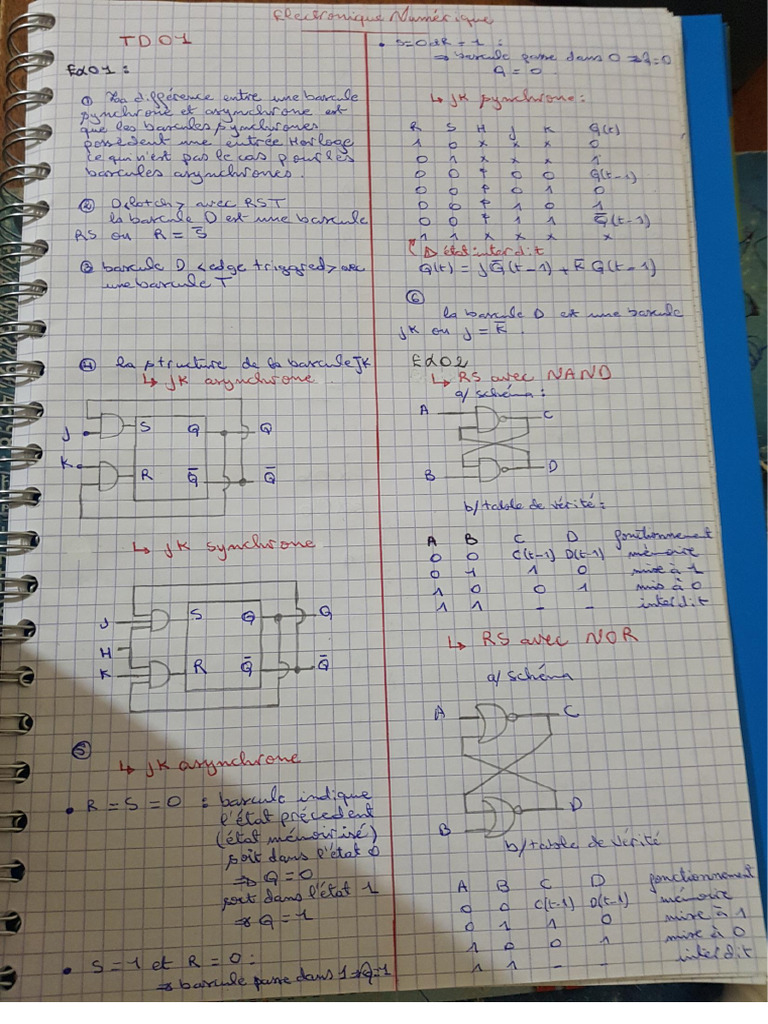 Electronique Numérique
TD01
Exo1 :
① La différence entre une bascule
synchrone et asynchrone est
que les bascules synchrones
possèdent une entrée Horloge
ce qui n'est pas le cas pour les
bascules asynchrones.
② D<latch> avec RST
la bascule D est une bascule
RS ou R = S̅
③ bascule D <edge triggred> avec
une bascule T
④ la structure de la bascule JK
↳ JK asynchrone
J
K
S Q Q
R Q̅ Q̅
↳ JK synchrone
J
H
K
S Q Q
R Q̅ Q̅
⑤
↳ JK asynchrone
• R = S = 0 : bascule indique
l'état précedent
(état mémoirisé)
soit dans l'état 0
⇒ Q = 0
soit dans l'état 1
⇒ Q = 1
• S = 1 et R = 0 :
⇒ bascule passe dans 1 ⇒ Q = 1
• S = 0 et R = 1 :
⇒ bascule passe dans 0
Q = 0
↳ JK synchrone :
R S H J K Q(t)
1 0 x x x 0
0 1 x x x 1
0 0 ↑ 0 0 Q(t-1)
0 0 ↑ 0 1 0
0 0 ↑ 1 0 1
0 0 ↑ 1 1 Q̅(t-1)
1 1 x x x x
état interdit
Q(t) = J Q̅(t-1) + K̅ Q(t-1)
⑥
la bascule D est une bascule
JK ou J = K̅.
Exo2
↳ RS avec NAND
a/ schéma :
A C
B D
b/ table de vérité :
A B C D fonctionnement
0 0 C(t-1) D(t-1) mémoire
0 1 1 0 mise à 1
1 0 0 1 mis à 0
1 1 - - interdit
↳ RS avec NOR
a/ schéma
A C
B D
b/ table de vérité
A B C D fonctionnement
0 0 C(t-1) D(t-1) mémoire
0 1 1 0 mise à 1
1 0 0 1 mise à 0
1 1 - - interdit